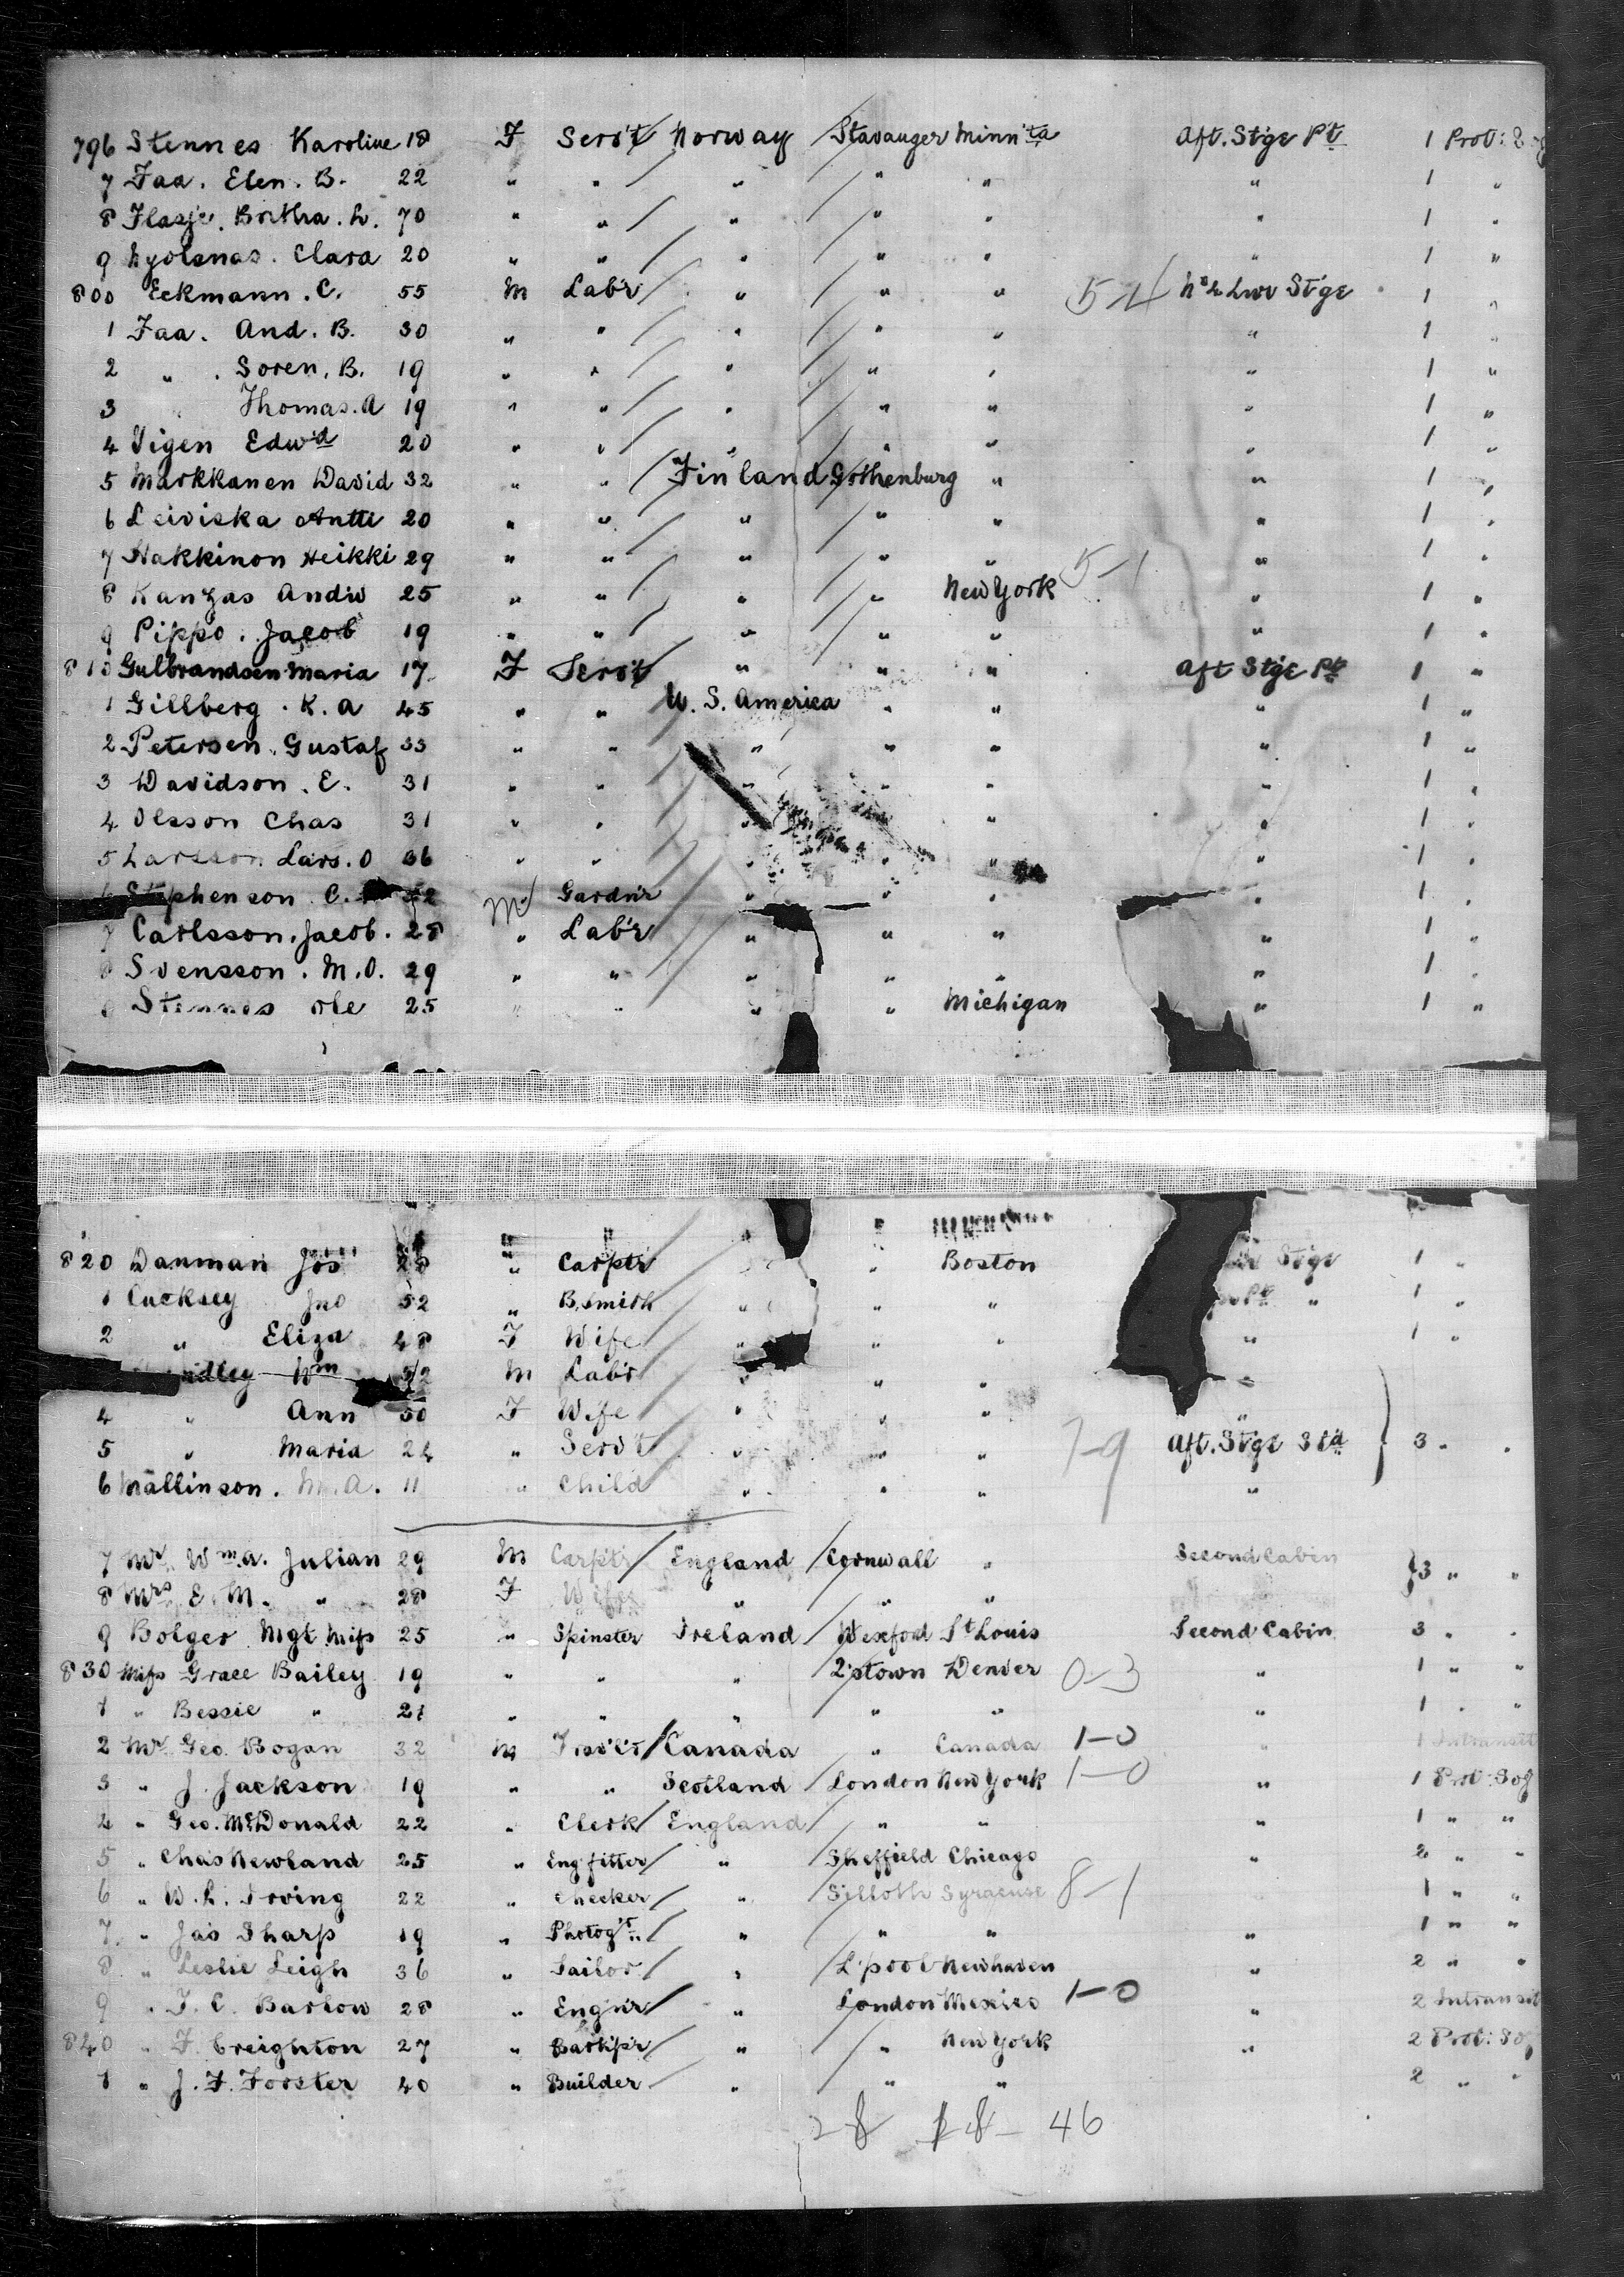 796 Stennes Karoline 18 F Serv't Norway Stavanger Minn'ta Aft. Stge Pt 1 Prot:
7 Faa. Elen. B. 22 " " " " " " 1 "
8 Bertha. L. 70 " " " " " " 1 "
9 Clara 20 " " " " " " 1 "
800 Eckmann. C. 55 M Lab'r " " " Stge 1 "
1 Faa. And. B. 30 " " " " " " 1 "
2 " . Soren. B. 19 " " " " " " 1 "
3 " Thomas. A 19 " " " " " " 1 "
4 Vigen Edw'd 20 " " " " " " 1 "
5 Markkanen David 32 " " Finland Gothenburg " " 1 "
6 Leiviska Antti 20 " " " " " " 1 "
7 Hakkinon Heikki 29 " " " " " 5-1 " 1 "
8 Kangas Andw 25 " " " " New York " 1 "
9 Pippo. Jacob 19 " " " " " " 1 "
810 Gulbrandsen Maria 17 F Serv't " " " Aft Stge Pt 1 "
1 Gillberg. K. A 45 " " U. S. America " " " 1 "
2 Petersen. Gustaf 33 " " " " " " 1 "
3 Davidson. E. 31 " " " " " 1 "
4 Olsson Chas 31 " " " " " 1 "
5 Larsson Lars. O 36 " " " " " " 1 "
Stephenson C. M Gardn'r " " " " 1 "
7 Carlsson. Jacob. 28 " Lab'r " " " " 1 "
Svensson. M. O. 29 " " " " " " 1 "
Stennes Ole 25 " " " " Michigan " 1 "
820 Danman Jos 28 " Carptr " Boston Stge 1 "
1 Cucksey Jno 52 " B. Smith " " " " 1 "
2 " Eliza 48 F Wife " " " " 1 "
Wm 52 M Lab'r " " " "
4 " Ann 50 F Wife " " " "
5 " Maria 24 " Serv't " " " 7-9 Aft. Stge 3 " "
6 Mallinson. M. A. 11 " Child " " " "
7 Mr. Wm. A. Julian 29 M Carptr England Cornwall " Second Cabin } 3 " "
8 Mrs. E. M. " 28 F Wife " " "
9 Bolger Mgt Miss 25 " Spinster Ireland Wexford St Louis Second Cabin 3 " "
830 Miss Grace Bailey 19 " " " Q'stown Denver 0-3 " 1 " "
1 " Bessie " 21 " " " " " " 1 " "
2 Mr. Geo. Bogan 32 M Canada " Canada 1-0 " 1 Intransit
3 " J. Jackson 19 " " Scotland London New York 1-0 " 1 Prot:
4 " Geo. McDonald 22 " Clerk England " " " 1 " "
5 " Chas Newland 25 " Eng fitter " Sheffield Chicago " 2 " "
6 " W. L. Irving 22 " Checker " Silloth Syracuse 8-1 1 " "
7 " Jas Sharp 19 " " " " " 1 " "
8 " Leslie Leigh 36 " Sailor " L'pool Newhaven " 2 " "
9 " F. C. Barlow 28 " Engin'r " London Mexico 1-0 " 2 Intransit
840 " F. Creighton 27 " " " New York " 2 Prot:
1 " J. F. Forster 40 " Builder " " " 2 " "
28 18- 46